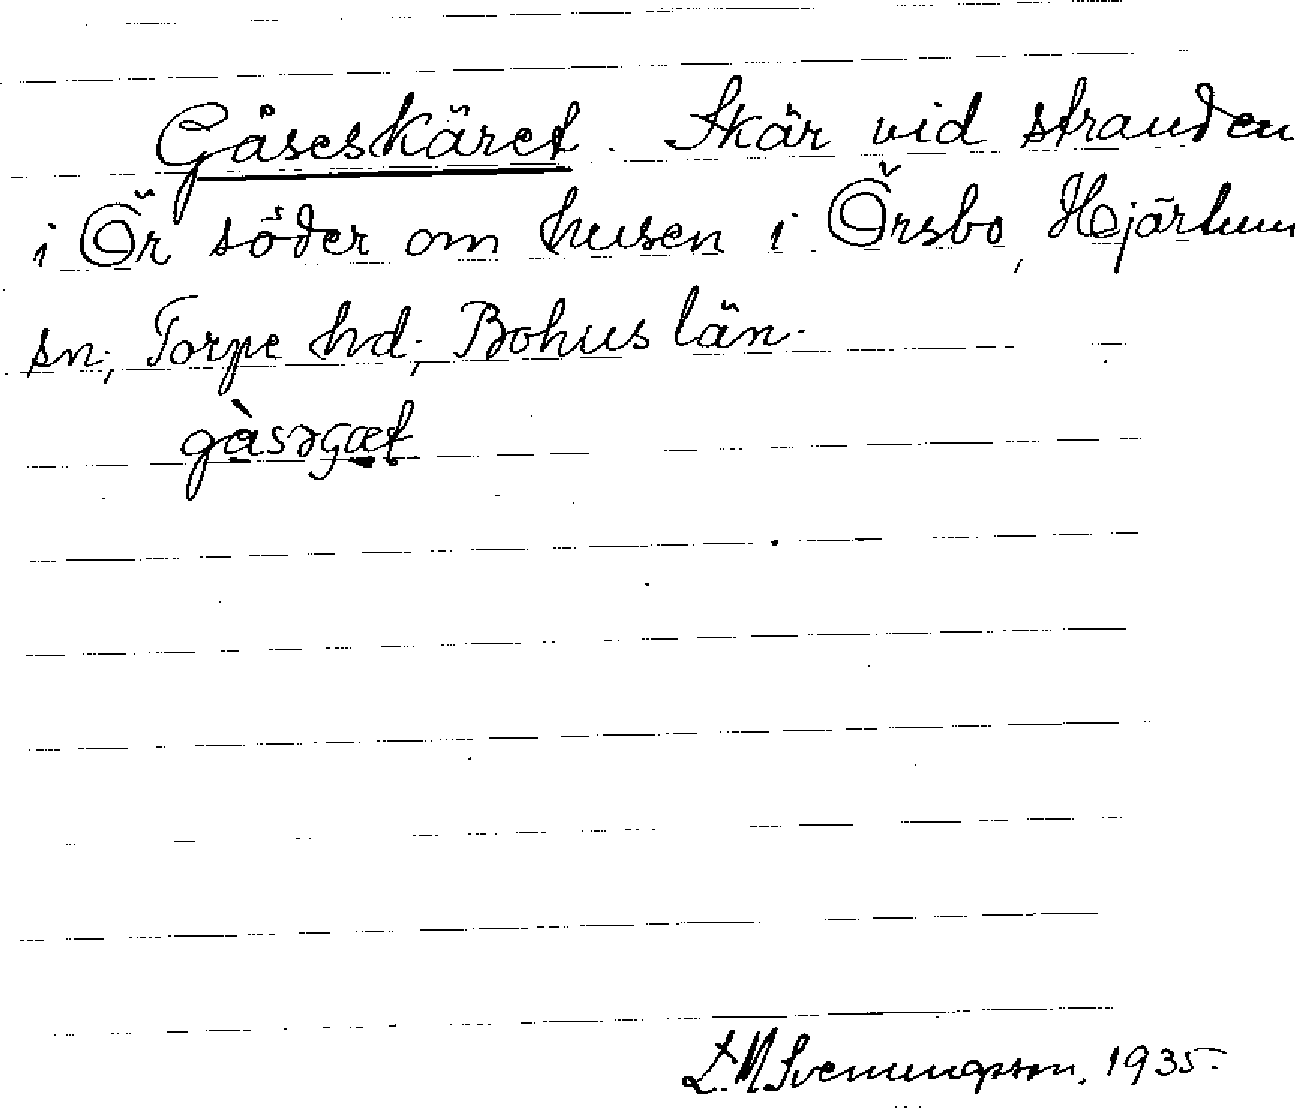 Gåseskäret. Skär vid stranden
i Ör söder om husen i Örsbo, Hjärtum
sn; Torpe hd; Bohus län.
gàsəgæt
L.M. Svenungsson. 1935.